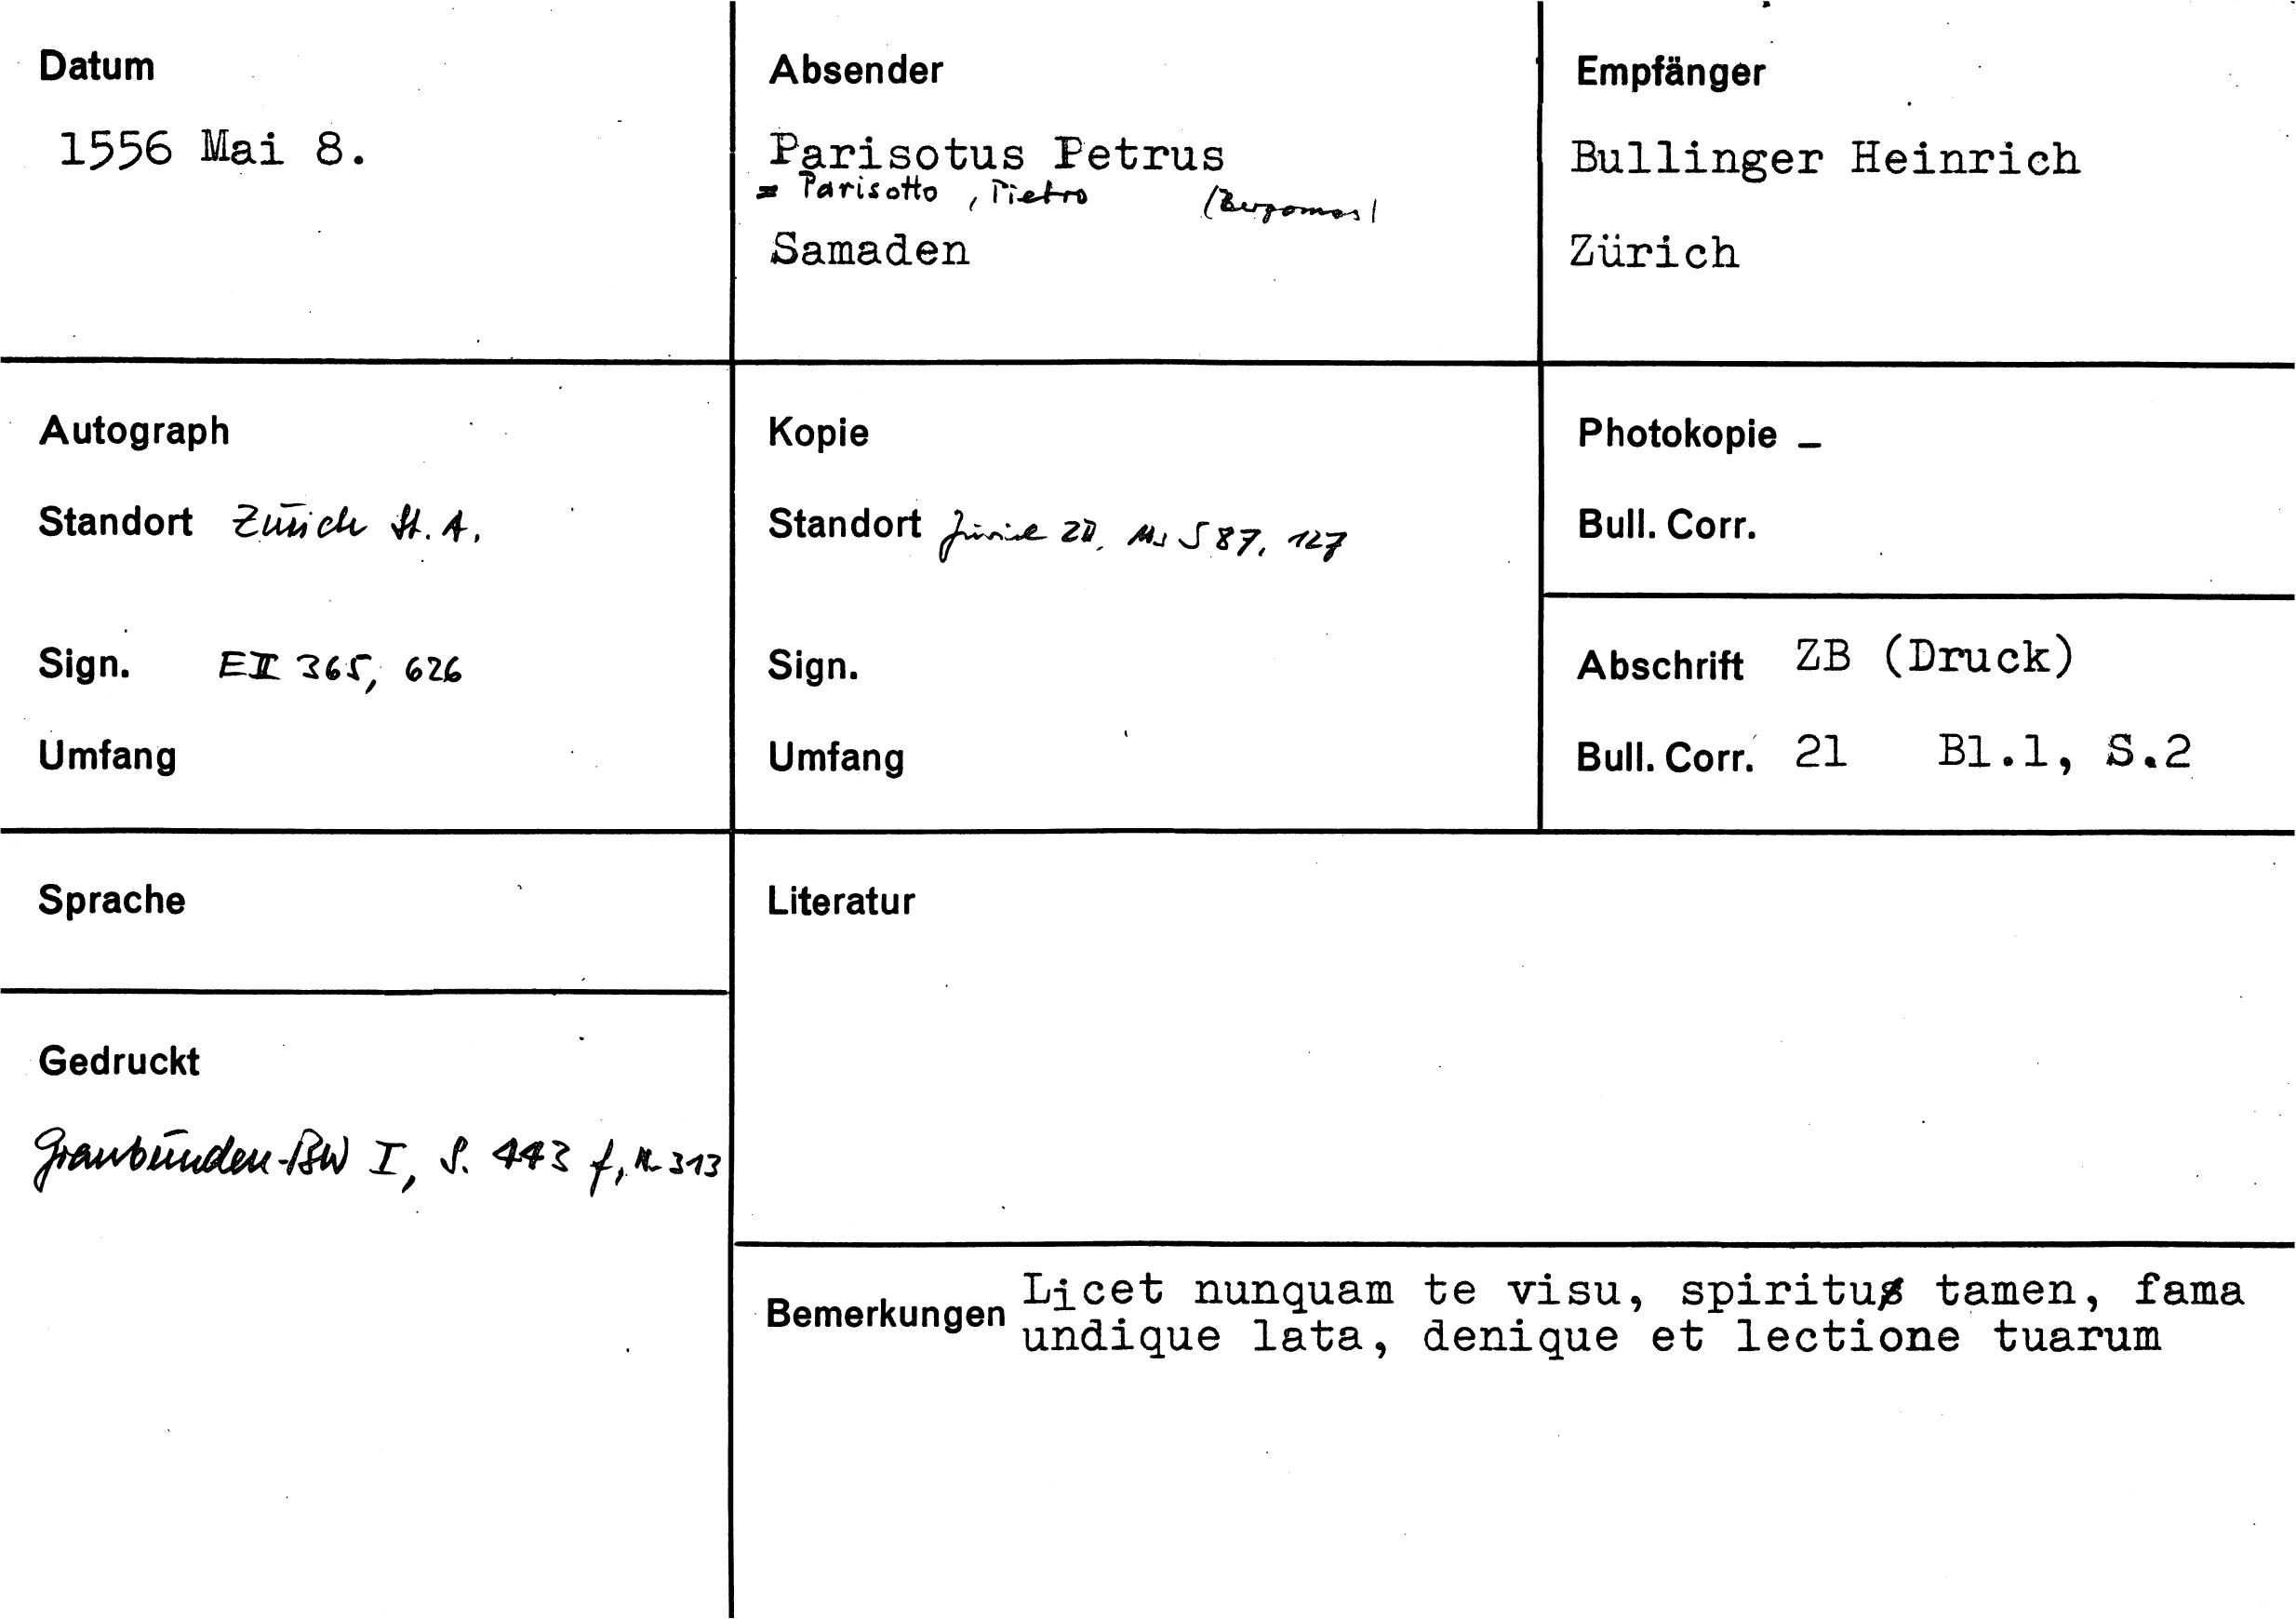 Datum
1556 Mai 8.
Absender
Parisotus Petrus
= Parisotto, Pietro (Bergomas)
Samaden
Empfänger
Bullinger Heinrich
Zürich
Autograph
Standort Zürich St. A.
Sign. E II 365, 626
Umfang
Kopie
Standort Zürich ZB, Ms S 87, 127
Sign.
Umfang
Photokopie –
Bull. Corr.
Abschrift ZB (Druck)
Bull. Corr. 21 Bl.1, S.2
Sprache
Gedruckt
Graubünden-BW I, S. 443 f, Nr. 313
Literatur
Bemerkungen Licet nunquam te visu, spiritu tamen, fama
undique lata, denique et lectione tuarum